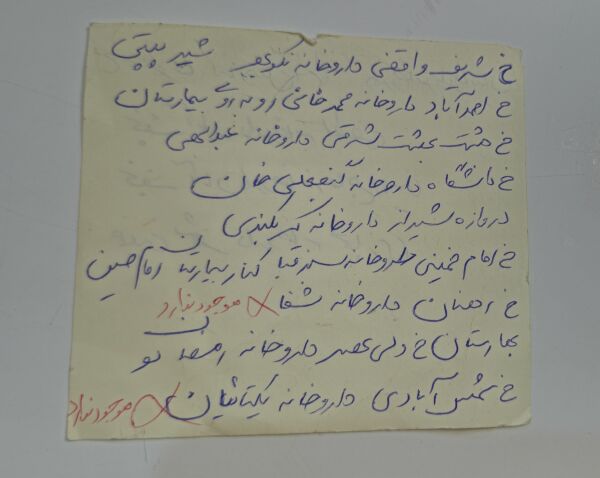 خ شریف واقفی داروخانه نکوعهد شیر پپتی
خ احمدآباد داروخانه محمدخانی روبه روی بیمارستان
خ هشت بهشت شرقی داروخانه عبدالهی
خ دانشگاه داروخانه گنجعلی خان
دروازه شیراز داروخانه کمربندی
خ امام خمینی داروخانه سند قبا کنار بیمارستان امام حسین
خ ردنان داروخانه شفا موجود ندارد
بهارستان خ ولی عصر داروخانه نو
خ شمس آبادی داروخانه یکتائیان موجود ندارد